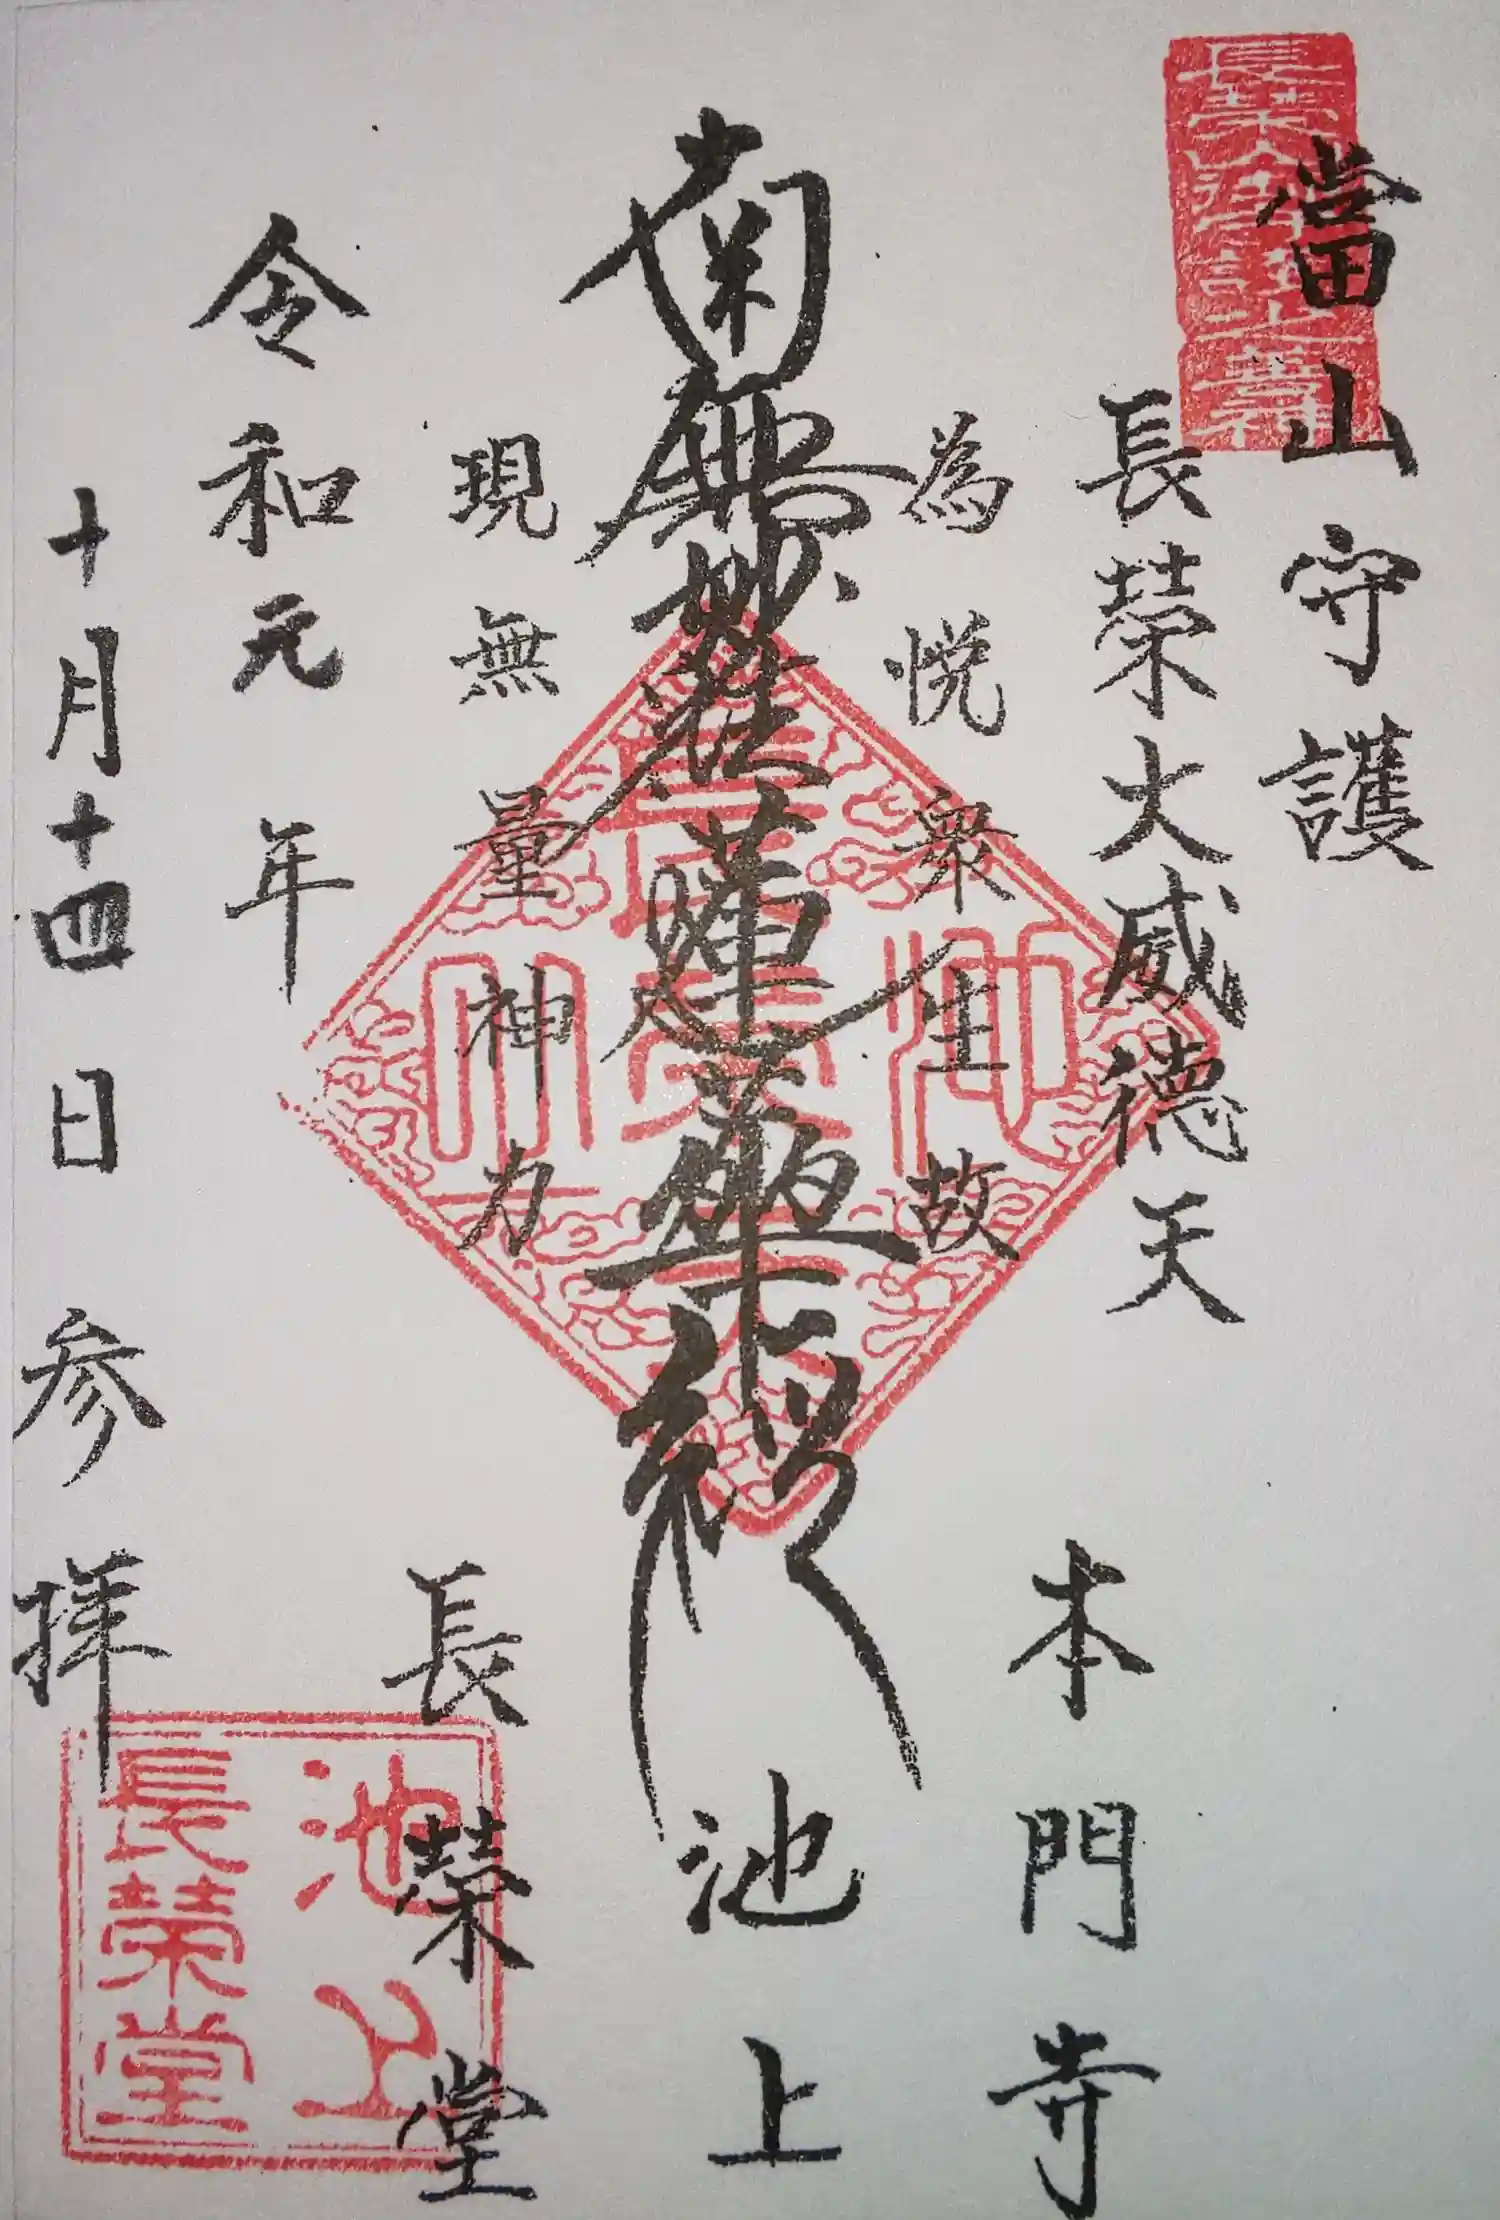 當山守護
長榮大威德天
為悦衆生故
南無妙法蓮華経
現無量神力
令和元年
十月十四日参拝
本門寺
池上
長榮堂
池上
長榮堂